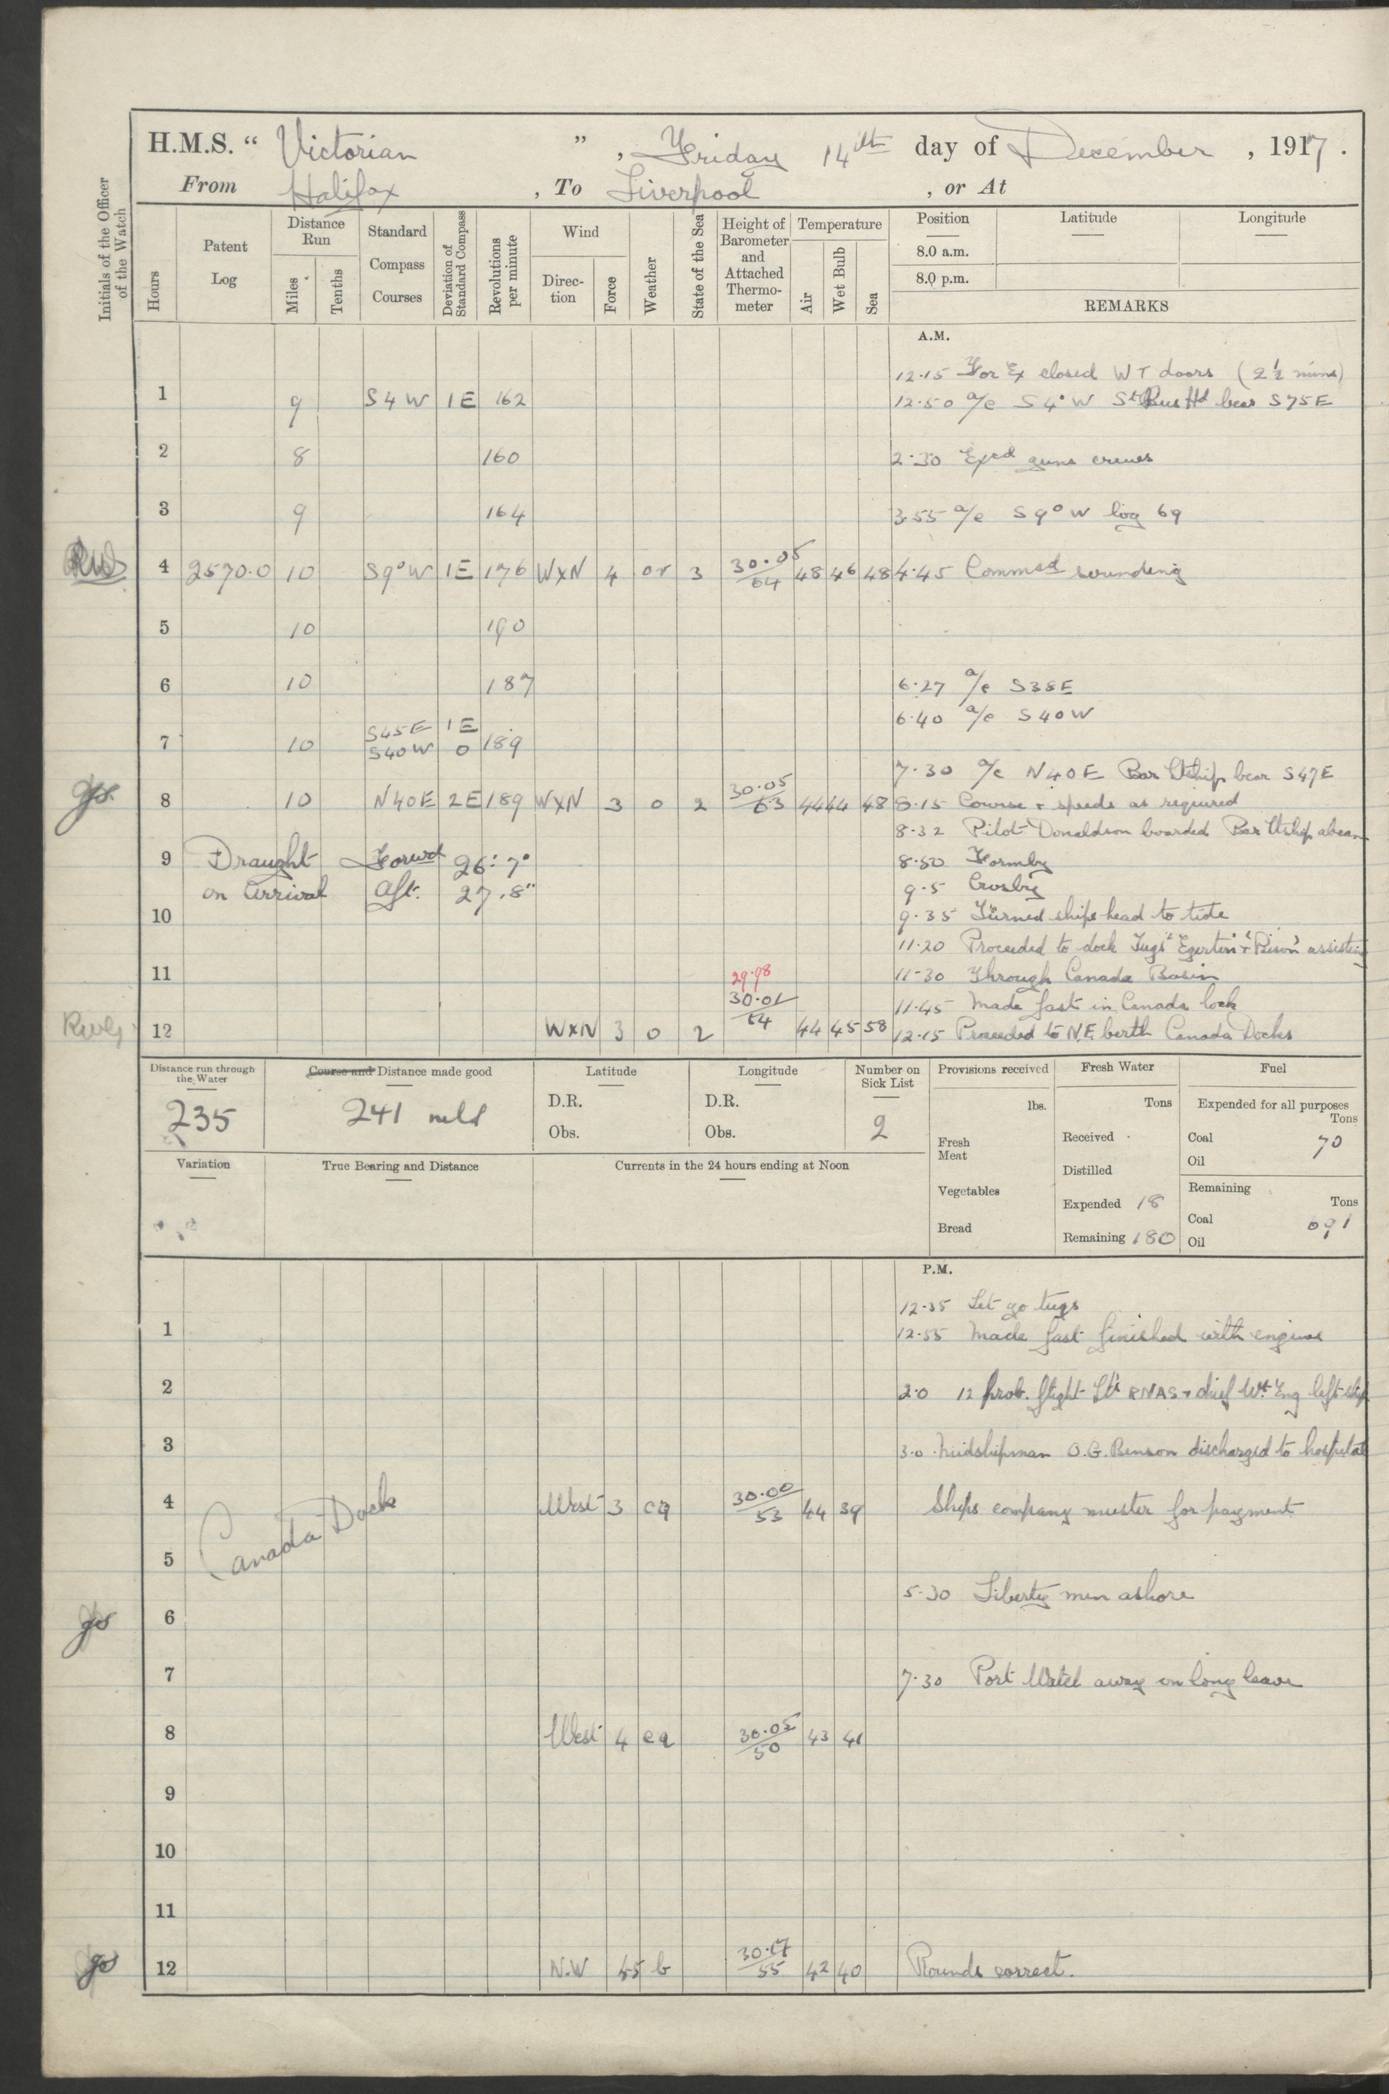 H.M.S. " Victorian " , Friday 14th day of December , 1917 .
From Halifax , To Liverpool , or At
Initials of the Officer of the Watch
Hours
Patent Log
Distance Run
Miles
Tenths
Standard Compass Courses
Deviation of Standard Compass
Revolutions per minute
Wind
Direction
Force
Weather
State of the Sea
Height of Barometer and Attached Thermometer
Temperature
Air
Wet Bulb
Sea
Position
Latitude
Longitude
8.0 a.m.
8.0 p.m.
REMARKS
A.M.
12.15 For Ex closed W T doors (2½ mins)
1 9 S4W 1E 162 12.50 a/c S4°W Hd bear S75E
2 8 160 2.30 Exd guns crews
3 9 164 3.55 a/c S9°W log 69
4 2570.0 10 S9°W 1E 176 WXN 4 or 3 30.05 64 48 46 48 4.45 Commsd sounding
5 10 190
6 10 187 6.27 a/c S38E
6.40 a/c S40W
7 10 S45E 1E S40W 0 189
7.30 a/c N40E Bar Ltship bear S47E
8 10 N40E 2E 189 WXN 3 0 2 30.05 63 44 44 48 8.15 Course & speeds as required
8.32 Pilot Donaldson boarded Bar Ltship abeam
9 Draught Forwd 26' 7" 8.50 Formby
on arrival Aft. 27.8" 9.5 Crosby
10 9.35 Turned ships head to tide
11.20 Proceeded to dock Tugs "Egerton" & "Bison" assisting
11 29.98 11.30 Through Canada Basin
30.01 11.45 Made fast in Canada lock
12 WXN 3 0 2 64 44 45 58 12.15 Proceeded to N.E. berth Canada Docks
Distance run through the Water
235
Course and Distance made good
241 mls
Latitude
D.R.
Obs.
Longitude
D.R.
Obs.
Number on Sick List
2
Provisions received
lbs.
Fresh Meat
Vegetables
Bread
Fresh Water
Tons
Received
Distilled
Expended 18
Remaining 180
Fuel
Expended for all purposes
Tons
Coal 70
Oil
Remaining
Tons
Coal 691
Oil
Variation
True Bearing and Distance
Currents in the 24 hours ending at Noon
P.M.
12.35 Let go tugs
1 12.55 Made fast finished with engines
2 2.0 12 prob. flight Lts RNAS & chief Wt Eng left ship
3 3.0 Midshipman O.G. Benson discharged to hospital
4 West 3 cq 30.00 53 44 39 Ships company muster for payment
Canada Dock
5
5.30 Liberty men ashore
6
7 7.30 Port Watch away on long leave
8 West 4 cq 30.05 50 43 41
9
10
11
12 N.W 45 b 30.17 55 42 40 Rounds correct.